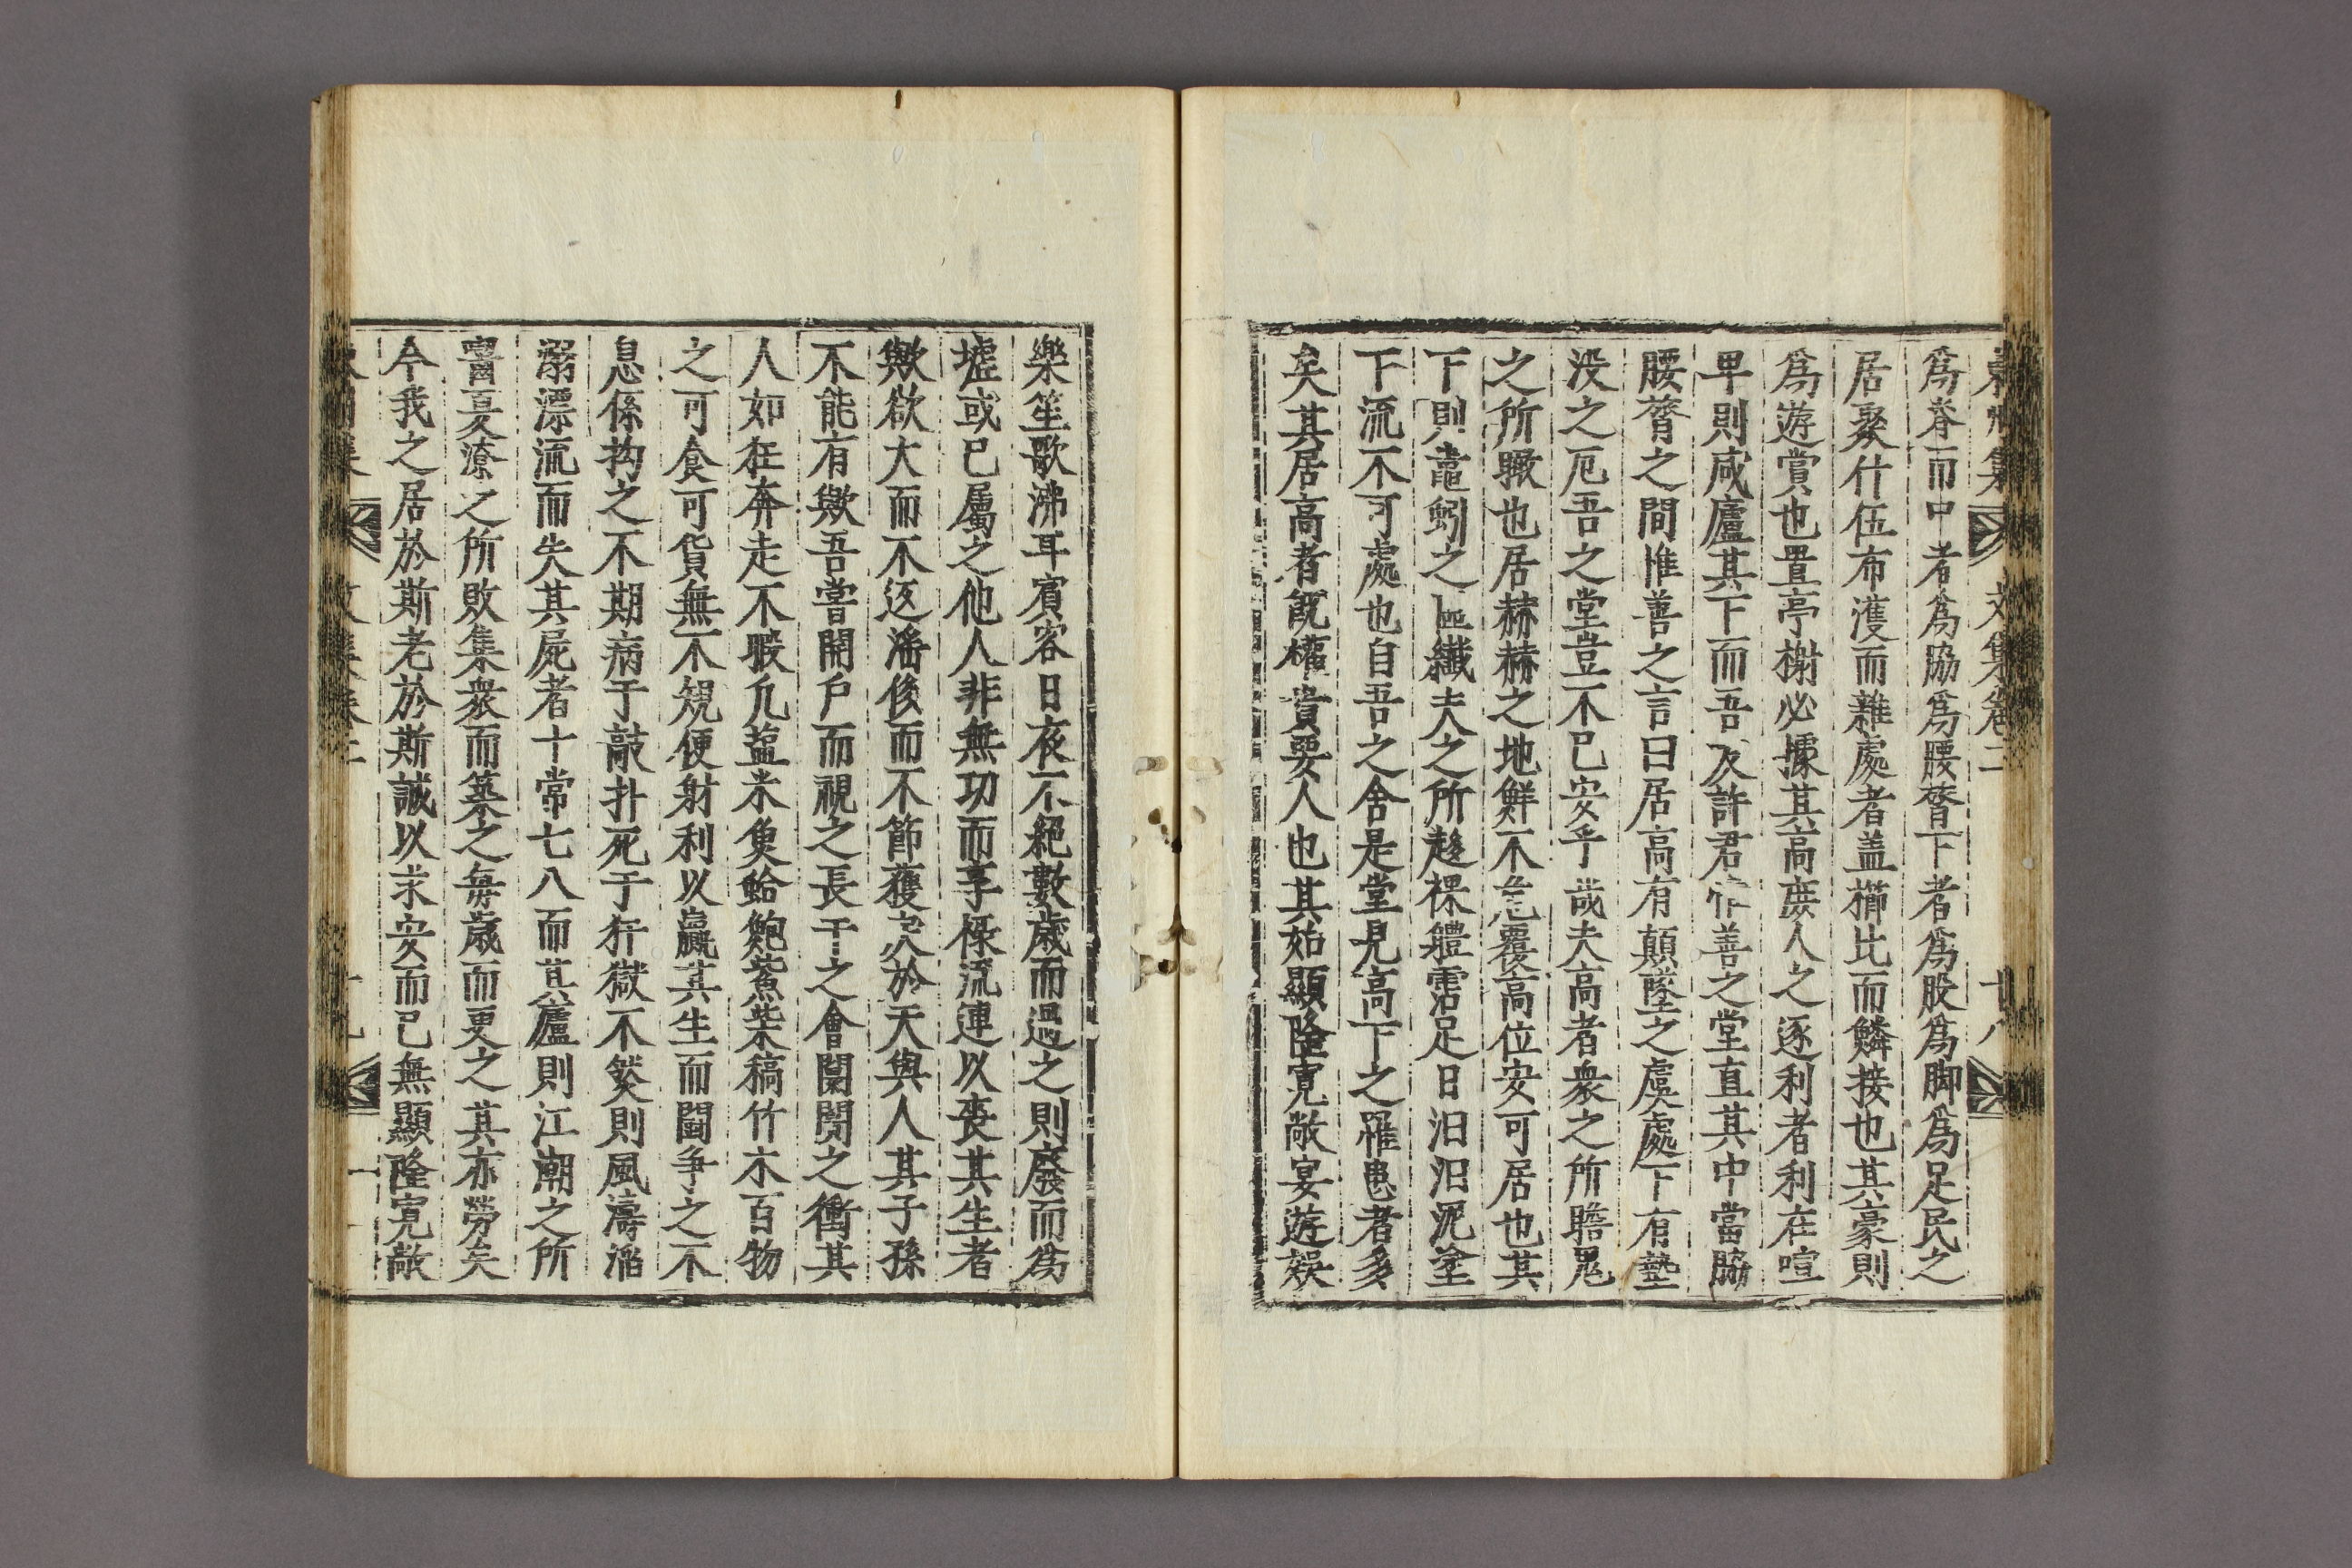 東州集 文集卷二 十八
爲脊而中者爲脇爲腰膂下者爲股爲脚爲足民之
居聚什伍布濩而雜處者盖櫛比而鱗接也其豪則
爲遊賞也置亭榭必據其高廣人之逐利者利在喧
卑則咸廬其下而吾友許君作善之堂直其中當脇
腰膂之間惟善之言曰居高有顚墜之虞處下有墊
没之厄吾之堂豈不已安乎哉夫高者衆之所瞻鬼
之所瞰也居赫赫之地鮮不危覆高位安可居也其
下則鼃蚓之區纖夫之所趍裸軆霑足日汩汩泥塗
下流不可處也自吾之舍是堂見高下之罹患者多
矣其居高者旣權貴要人也其始顯隆寬敞宴遊娱
樂笙歌沸耳賓客日夜不絕數歲而過之則廢而爲
墟或已屬之他人非無功而享怪流連以喪其生者
歟欲大而不返滛侈而不節獲 於天與人其子孫
不能有歟吾嘗開戶而視之長干之會闤閱之衝其
人如狂奔走不暇凡蓝米魚蛤鮑鮝柴稿竹木百物
之可食可貨無不規便射利以贏其生而鬪爭之不
息係拘之不期病于敲扑死于犴獄不然則風濤滔
溺漂流而失其屍者十常七八而其廬則江潮之所
嚙夏潦之所敗集衆而築之每歲而更之其亦勞矣
今我之居於斯老於斯誠以求安而已無顯隆寬敞